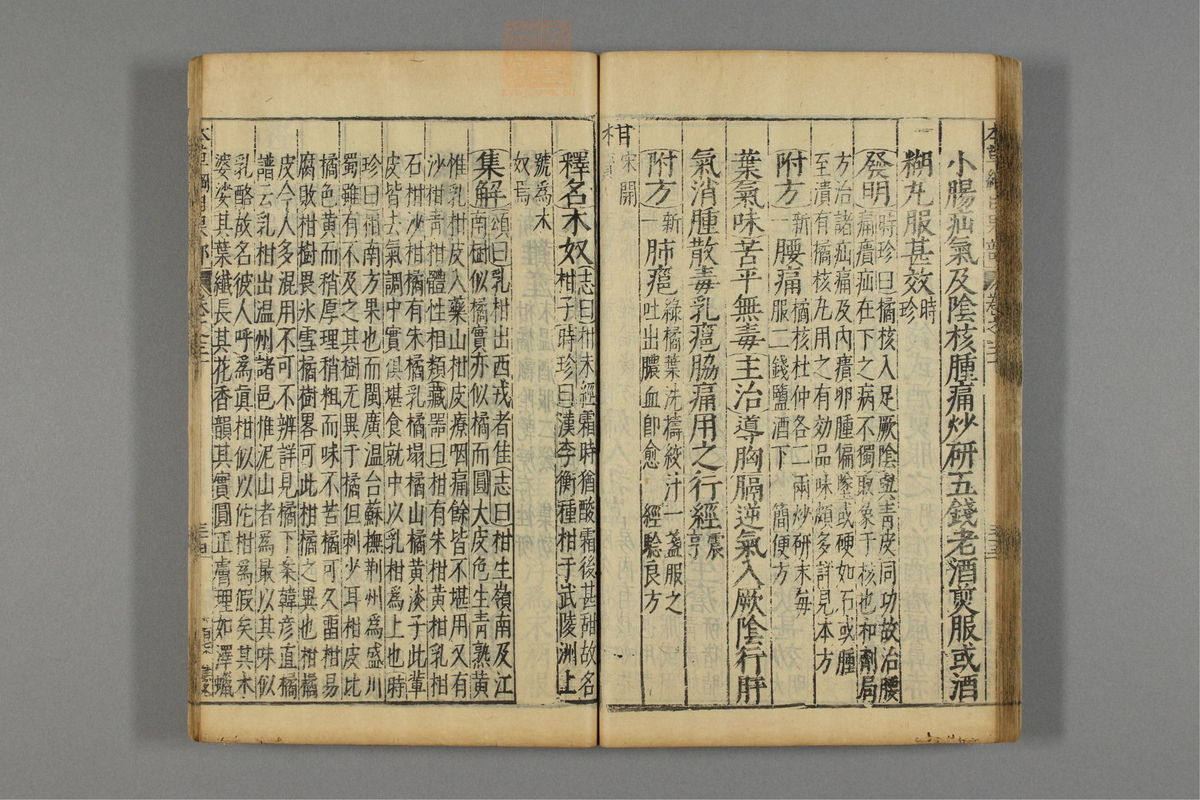 小腸疝氣及陰核腫痛炒研五錢老酒煎服或酒
糊丸服甚效時珍
發明時珍曰橘核入足厥陰與青皮同功故治腰
痛㿉疝在下之病不獨取象于核也和劑局
方治諸疝痛及內㿉卵腫偏墜或硬如石或腫
至潰有橘核丸用之有効品味頗多詳見本方
附方新一腰痛橘核杜仲各二兩炒研末每
服二錢鹽酒下簡便方
葉氣味苦平無毒主治導胸膈逆氣入厥陰行肝
氣消腫散毒乳癰脇痛用之行經震亨
附方新一肺癰綠橘葉洗擣絞汁一盞服之
吐出膿血即愈 經驗良方
柑宋開
釋名木奴志曰柑未經霜時猶酸霜後甚甜故名
柑子時珍曰漢李衡種柑于武陵洲上
號為木
奴焉
集解頌曰乳柑出西戎者佳志曰柑生嶺南及江
南樹似橘實亦似橘而圓大皮色生青熟黃
惟乳柑皮入藥山柑皮療咽痛餘皆不堪用又有
沙柑青柑體性相類藏器曰柑有朱柑黃柑乳柑
石柑沙柑橘有朱橘乳橘塌橘山橘黃淡子此輩
皮皆去氣調中實俱堪食就中以乳柑為上也時
珍曰柑南方果也而閩廣溫台蘇撫荆州為盛川
蜀雖有不及之其樹无異于橘但刺少耳柑皮比
橘色黃而稍厚理稍粗而味不苦橘可久留柑易
腐敗柑樹畏氷雪橘樹畧可此柑橘之異也柑橘
皮今人多混用不可不辨詳見橘下案韓彦直橘
譜云乳柑出温州諸邑惟泥山者為最以其味似
乳酪故名彼人呼為眞柑似以佗柑為假矣其木
婆娑其葉纎長其花香韻其實圓正膚理如澤蠟